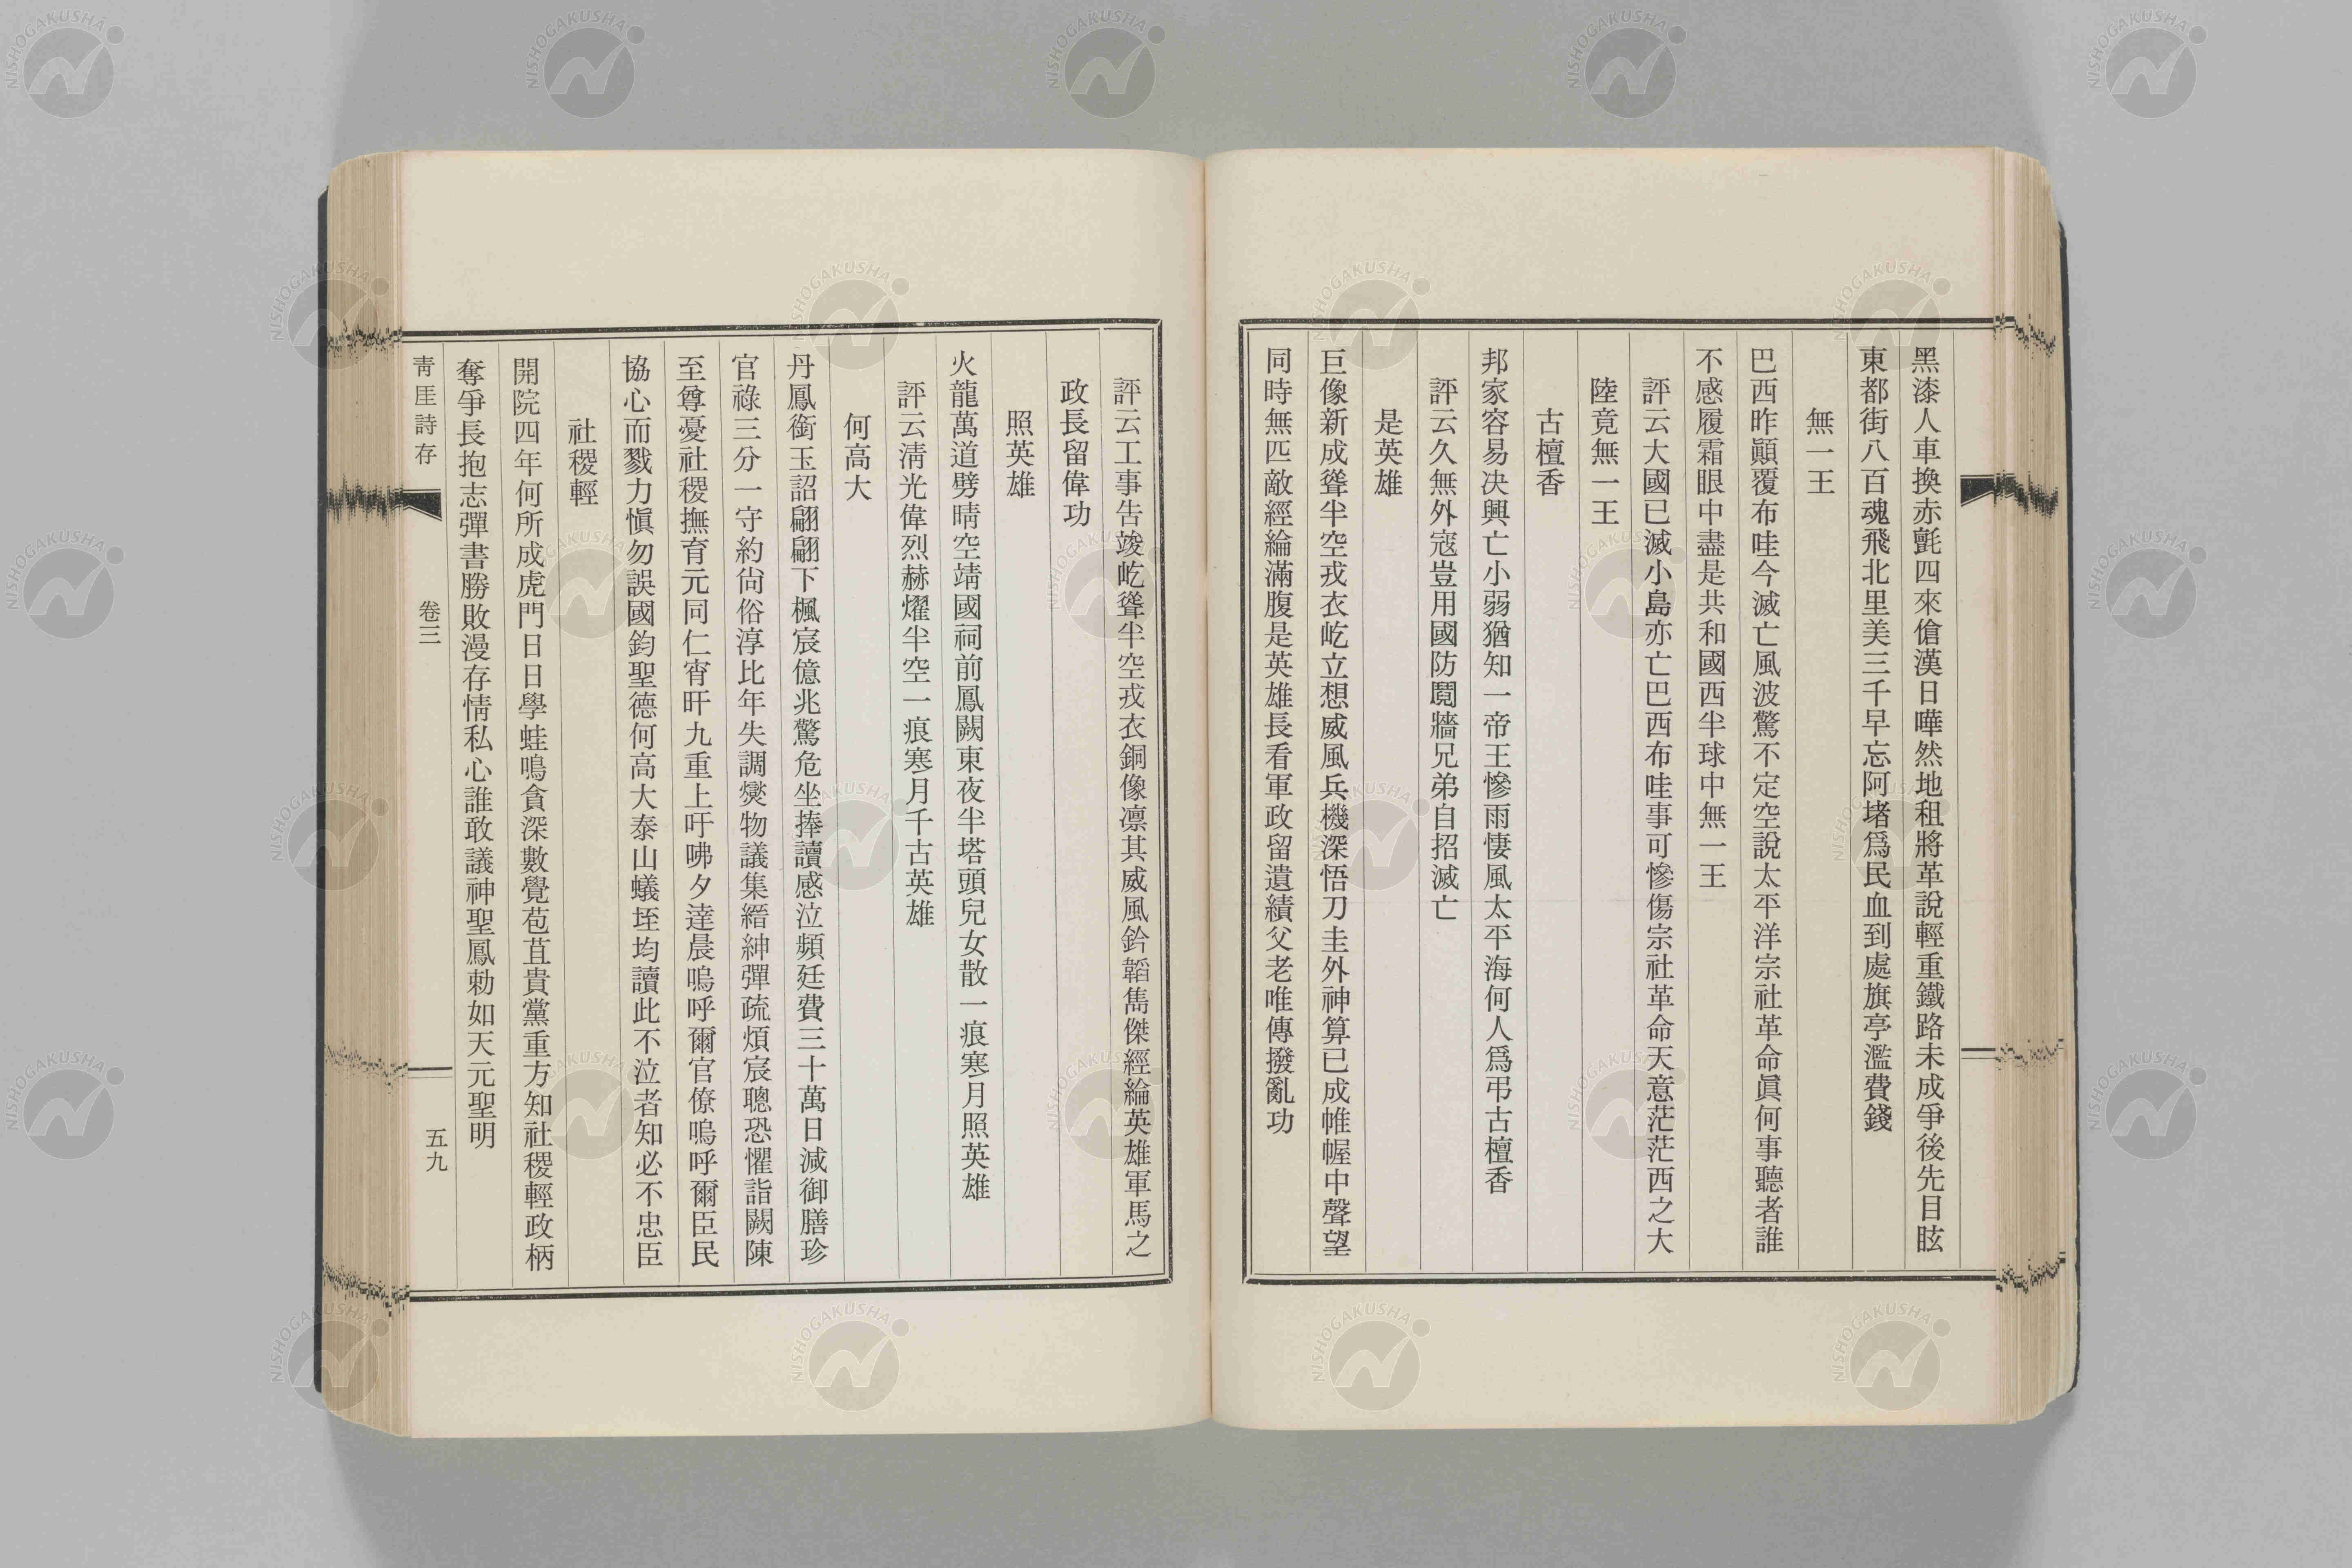 黑漆人車換赤氈四來傖漢日嘩然地租將革說輕重鐵路未成爭後先目眩
東都街八百魂飛北里美三千早忘阿堵爲民血到處旗亭濫費錢
無一王
巴西昨顚覆布哇今滅亡風波驚不定空說太平洋宗社革命眞何事聽者誰
不感履霜眼中盡是共和國西半球中無一王
評云大國已滅小島亦亡巴西布哇事可慘傷宗社革命天意茫茫西之大
陸竟無一王
古檀香
邦家容易决興亡小弱猶知一帝王慘雨悽風太平海何人爲弔古檀香
評云久無外寇豈用國防鬩牆兄弟自招滅亡
是英雄
巨像新成聳半空戎衣屹立想威風兵機深悟刀圭外神算已成帷幄中聲望
同時無匹敵經綸滿腹是英雄長看軍政留遺績父老唯傳撥亂功
評云工事告竣屹聳半空戎衣銅像凛其威風鈐韜雋傑經綸英雄軍馬之
政長留偉功
照英雄
火龍萬道劈晴空靖國祠前鳳闕東夜半塔頭兒女散一痕寒月照英雄
評云淸光偉烈赫燿半空一痕寒月千古英雄
何高大
丹鳳銜玉詔翩翩下楓宸億兆驚危坐捧讀感泣頻廷費三十萬日減御膳珍
官祿三分一守約尙俗淳比年失調燮物議集縉紳彈疏煩宸聰恐懼詣闕陳
至尊憂社稷撫育元同仁宵旰九重上吁咈夕達晨嗚呼爾官僚嗚呼爾臣民
協心而戮力愼勿誤國鈞聖德何高大泰山蟻垤均讀此不泣者知必不忠臣
社稷輕
開院四年何所成虎門日日學蛙鳴貪深數覺苞苴貴黨重方知社稷輕政柄
奪爭長抱志彈書勝敗漫存情私心誰敢議神聖鳳勅如天元聖明
靑厓詩存
卷三
五九
NISHOGAKUSHA